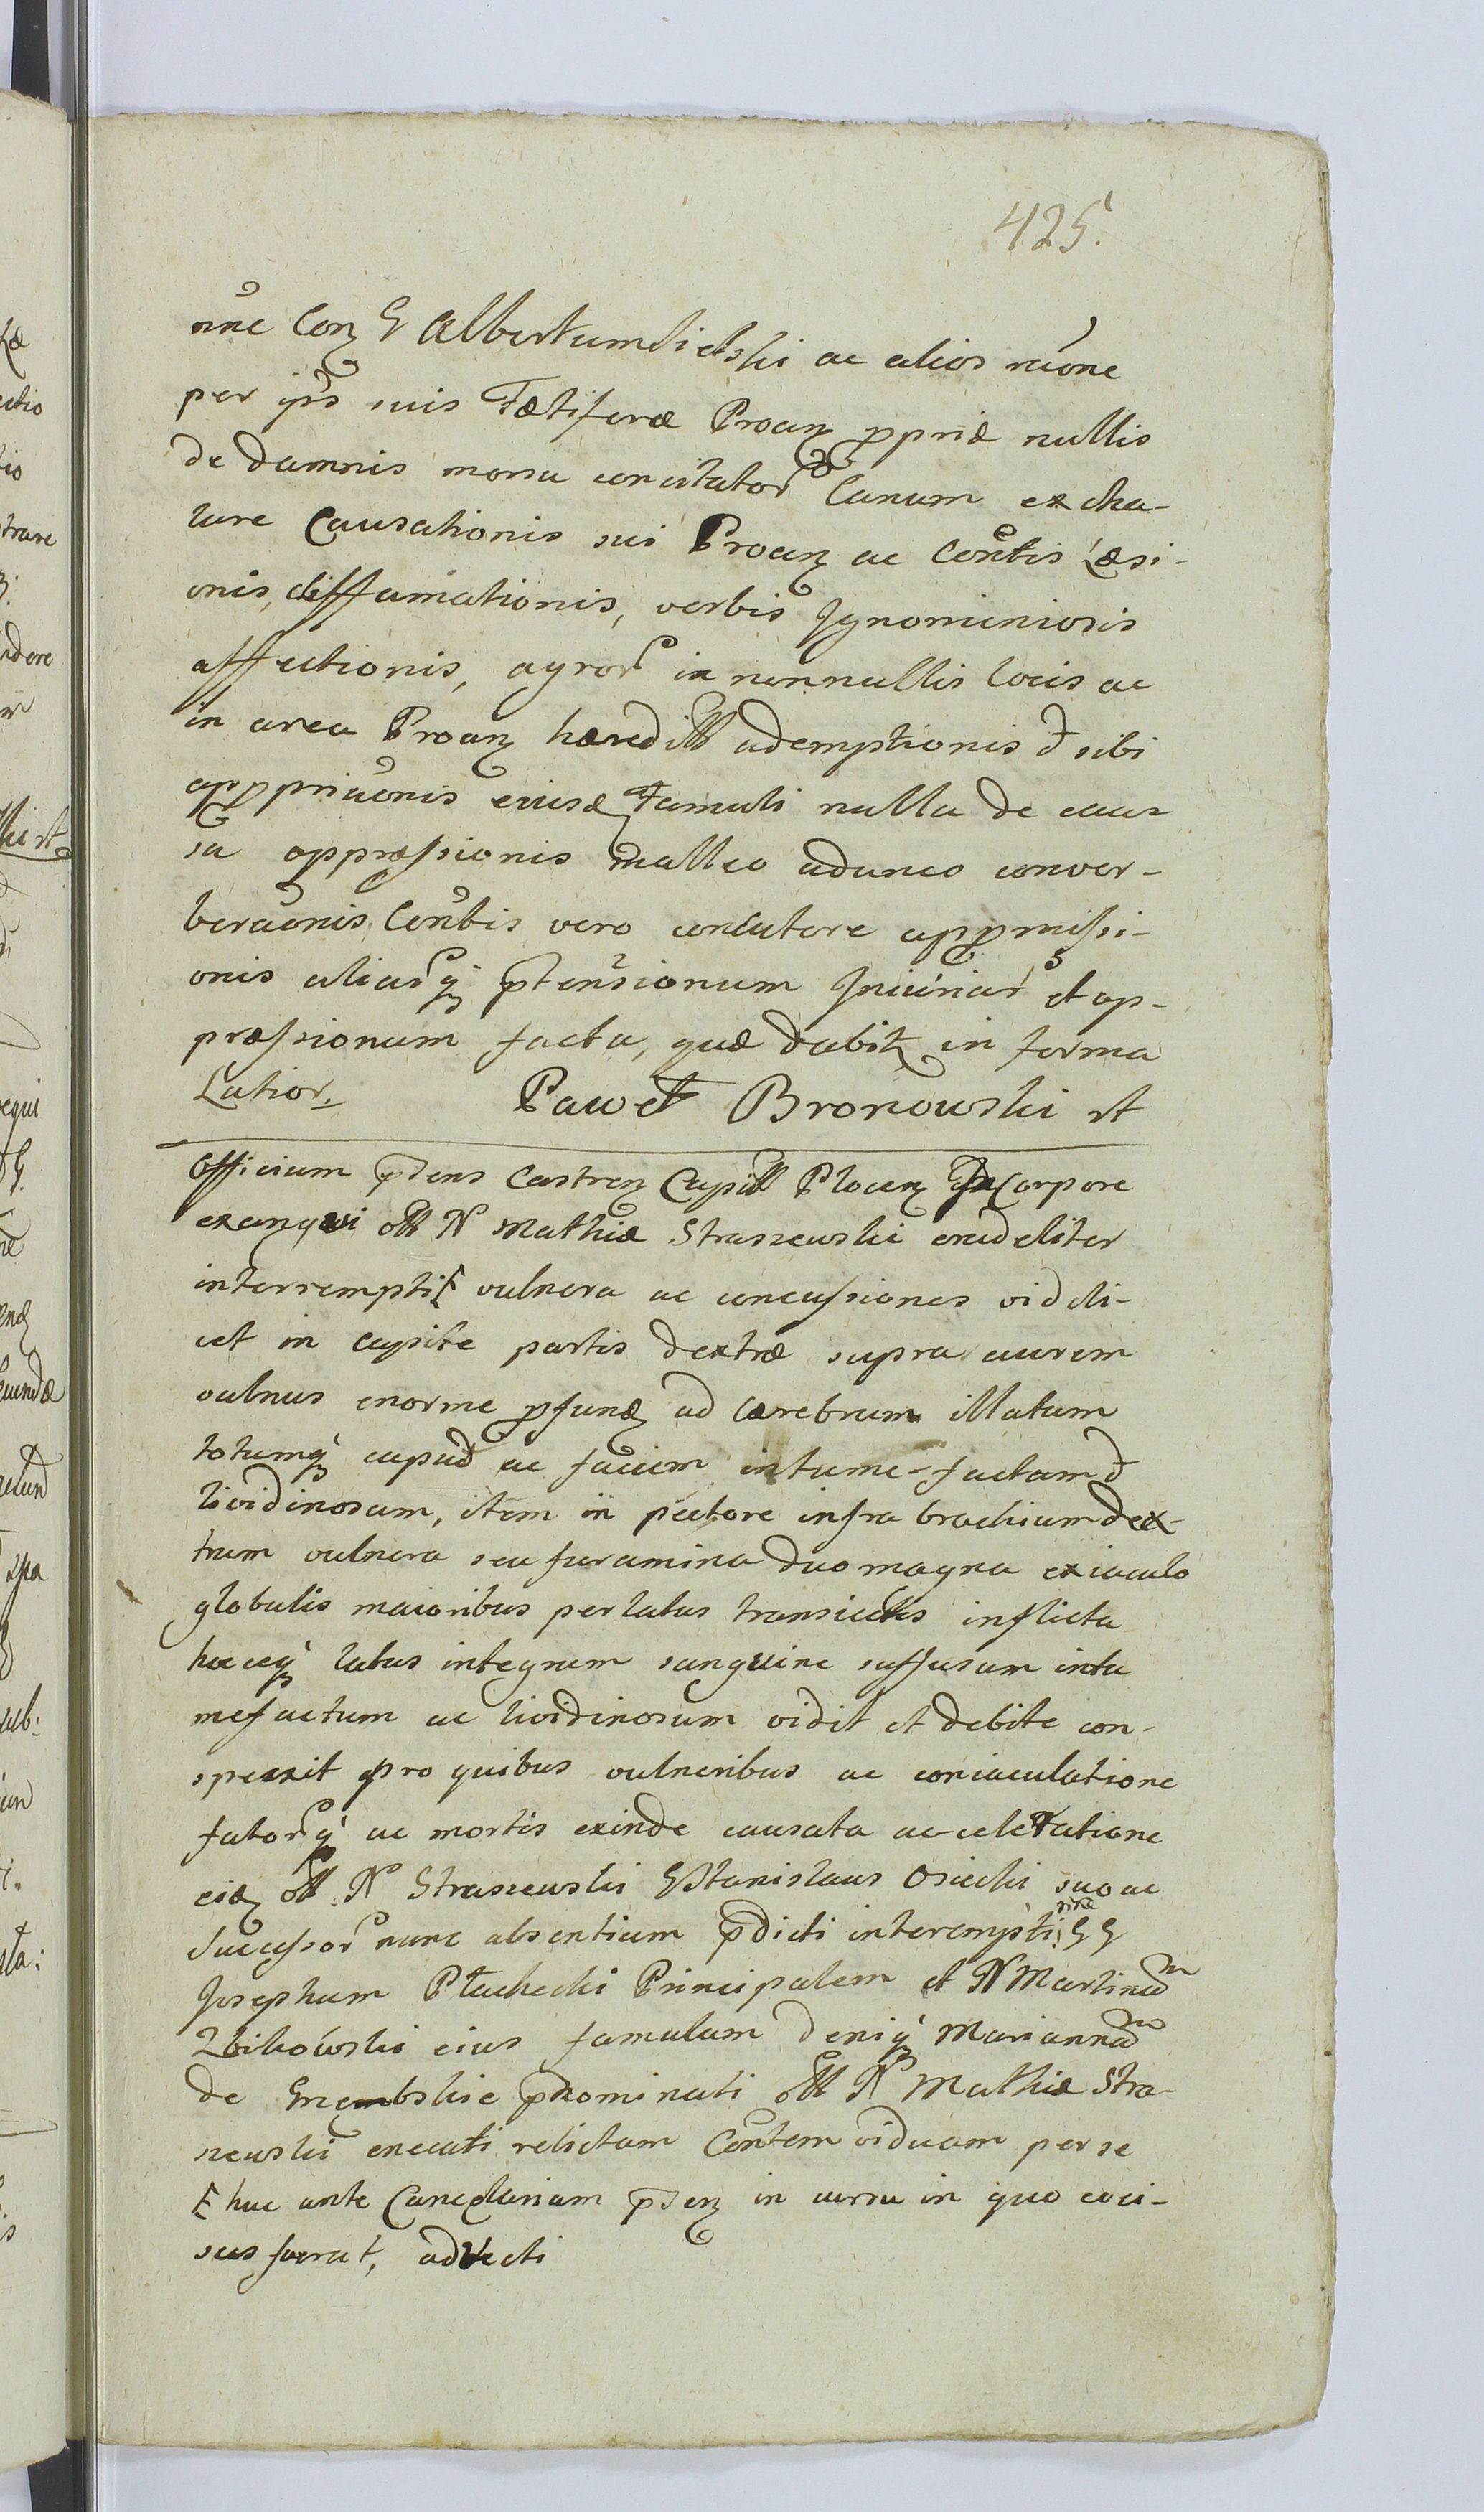 425.
nne Con G Albertum Sielski ac alios rãone
per ips suis Fætiferæ Procan ppriæ nullis
de damnis morsu concitator Canum excla-
ture Causationis sui Procan ac Contis Læsi-
onis, diffamationis, verbis Ignominiosis
affectionis, agror in nonnullis locis ac
in area Procan hæredill ademptionis & sibi
appprivãonis eiusd Famuli nulla de cau-
sa oppræssionis malleo adunco conver-
berãonis Contis vero concutere appromissi-
onis aliarq ptensionum Iniuriar et op-
præssionum facta, quæ dabit in forma
Latior. Paweł Bronowski st
Officium pdens Castren Capitt Plocen in Corpore
exangvi olt N Mathiæ Straszewski crudeliter
interrempti & vulnera ac concussiones videli-
cet in capite partis dextræ supra aurem
vulnus enorme pfund ad Cærebrum illatum
totumq caput ac faciem intume-factam &
lividinosam, item in pectore infra brachium dex-
trum vulnera seu foramina duo magna ex iaculo
globulis maioribus per latus transiectis inflicta
hocceq latus integrum sangvine suffusum intu
mefactum ac lividinosum vidit et debite con-
spexit pro quibus vulneribus ac coniaculatione
fatorq ac mortis exinde causata acceleratione
eid olt N Straszewski G Stanislaus Osiecki suo ac
Successor nunc absentium pdicti interempti nne G G
Josephum Płachecki Principalem et N Martinum
Zbikowski eius famulum deniq Mariannam
de Grzembskie pnominati olt N Mathiæ Stra-
szewski enecati relictam Contem viduam per se
& huc ante Cancellariam psen in curru in quo occi-
sus fuerat, advecti